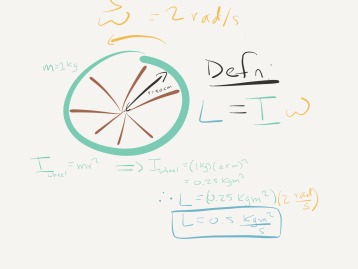 ω = 2 rad/s
m=1kg
Defn:
L = I ω
I wheel = mr² => I wheel = (1kg)(.5m)²
= 0.25 kgm²
∴ L = (0.25 kgm²)(2 rad/s)
L = 0.5 kgm²/s